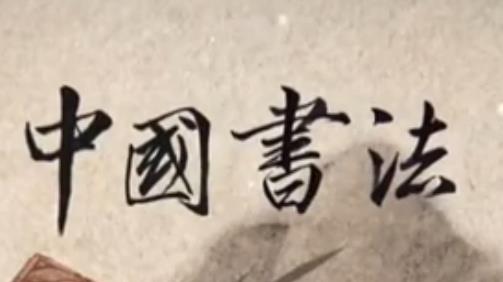 中國書法